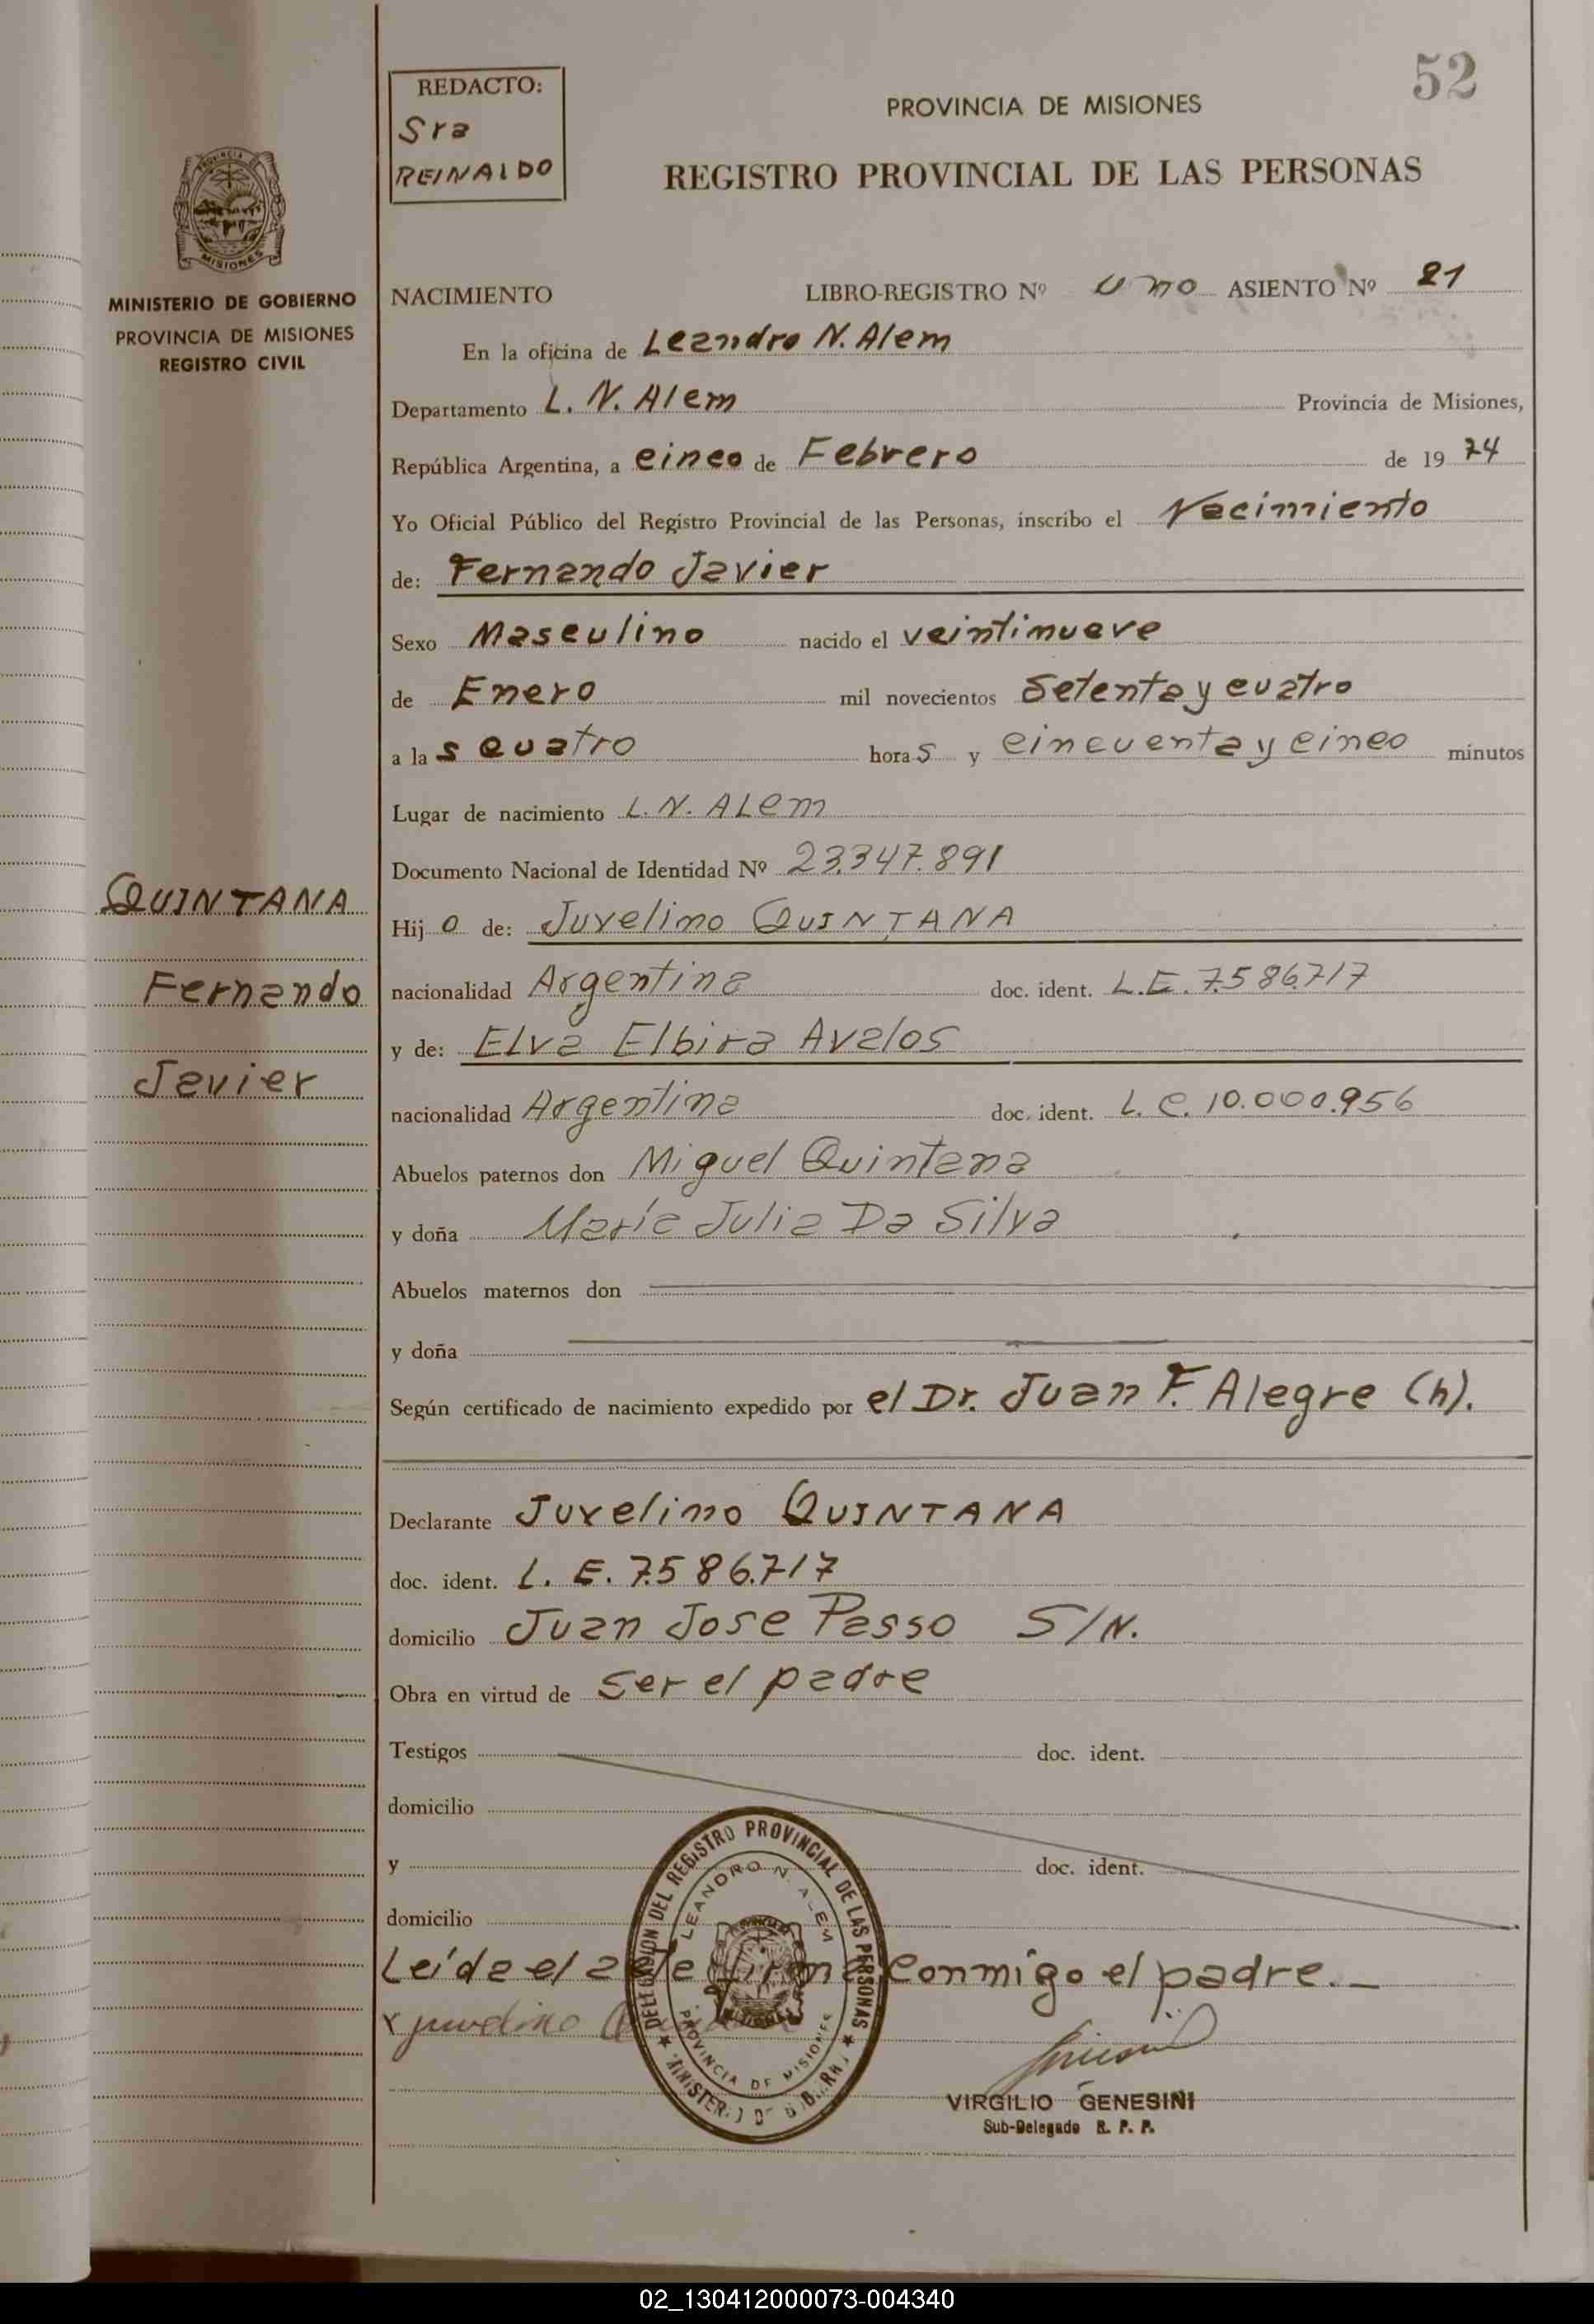 52
REDACTO:
Sra
REINALDO
PROVINCIA DE MISIONES
REGISTRO PROVINCIAL DE LAS PERSONAS
PROVINCIA DE
MISIONES
MINISTERIO DE GOBIERNO
PROVINCIA DE MISIONES
REGISTRO CIVIL
NACIMIENTO LIBRO-REGISTRO Nº uno ASIENTO Nº 81
En la oficina de Leandro N. Alem
Departamento L. N. Alem Provincia de Misiones,
República Argentina, a cinco de Febrero de 19 74
Yo Oficial Público del Registro Provincial de las Personas, inscribo el Nacimiento
de: Fernando Javier
Sexo Masculino nacido el veintinueve
de Enero mil novecientos Setenta y cuatro
a la s cuatro hora s y cincuenta y cinco minutos
Lugar de nacimiento L. N. ALem
Documento Nacional de Identidad Nº 23.347.891
QUINTANA
Fernando
Javier
Hij o de: Juvelino QUINTANA
nacionalidad Argentina doc. ident. L.E. 7.586.717
y de: Elva Elbira Avalos
nacionalidad Argentina doc. ident. L. C. 10.000.956
Abuelos paternos don Miguel Quintana
y doña María Julia Da Silva
Abuelos maternos don
y doña
Según certificado de nacimiento expedido por el Dr. Juan F. Alegre (h).
Declarante Juvelino QUINTANA
doc. ident. L. E. 7.586.717
domicilio Juan Jose Passo S/N.
Obra en virtud de Ser el padre
Testigos doc. ident.
domicilio
y doc. ident.
domicilio
Leída el acta firma conmigo el padre.—
x juvelino
DELEGACION DEL REGISTRO PROVINCIAL DE LAS PERSONAS
LEANDRO N. ALEM
PROVINCIA DE MISIONES
VIRGILIO GENESINI
Sub-Delegado R. P. P.
02_130412000073-004340